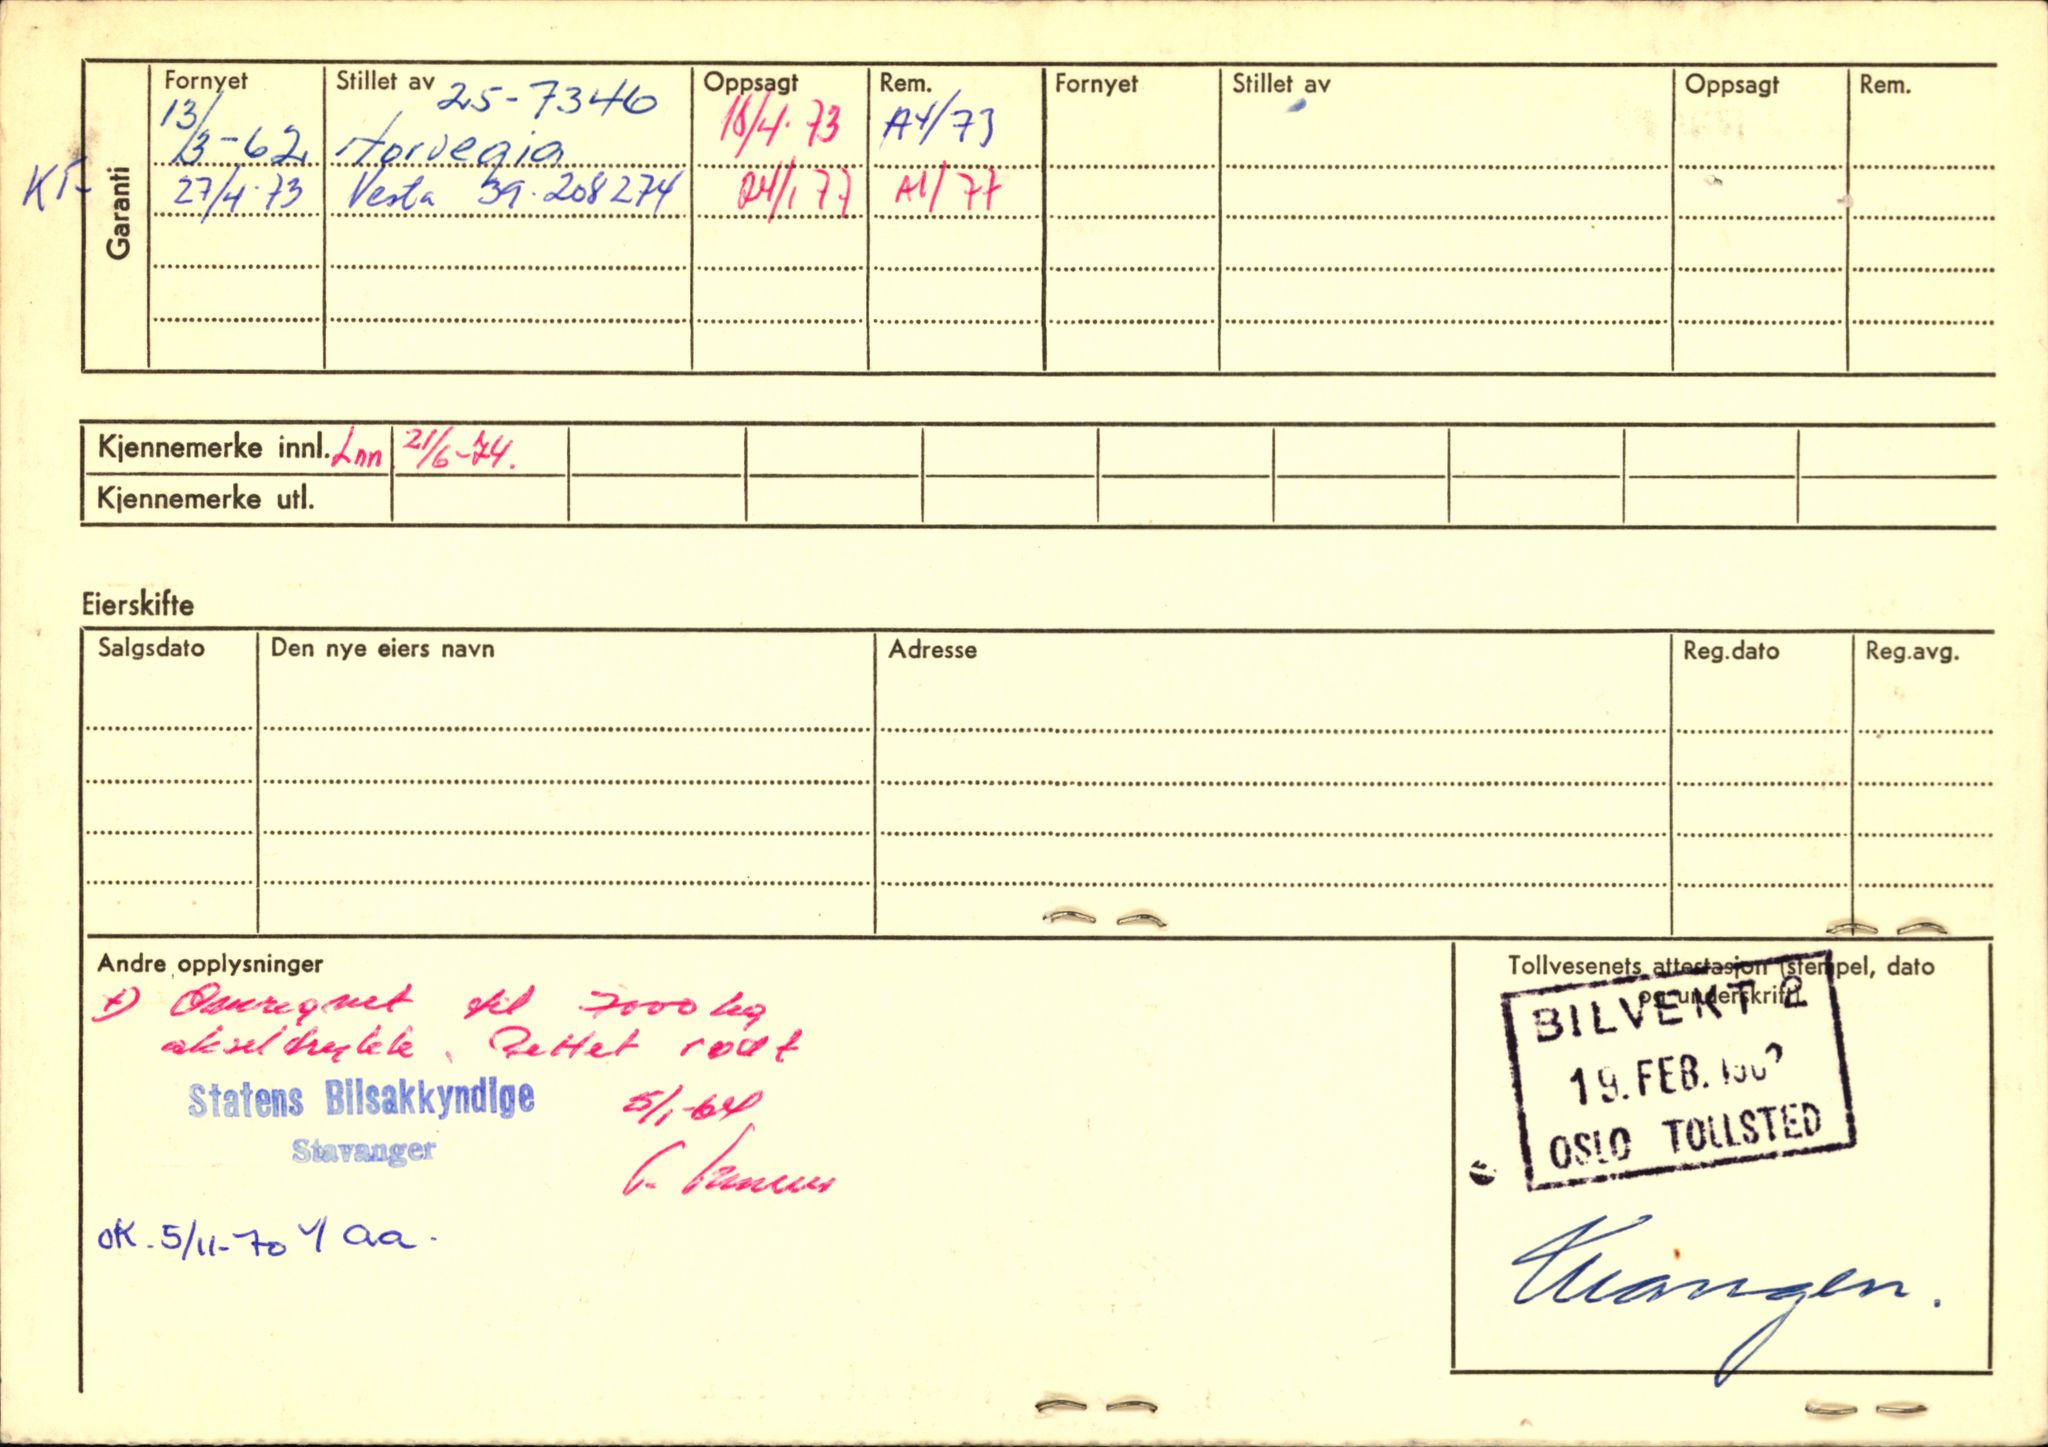 Garanti
Fornyet Stillet av Oppsagt Rem. Fornyet Stillet av Oppsagt Rem.
25-7346
13/3-62 Norvegia 18/4.73 A4/73
27/4.73 Vesta 39.208274 24/1 77 A1/77
Kjennemerke innl. 21/6-74.
Kjennemerke utl.
Eierskifte
Salgsdato Den nye eiers navn Adresse Reg.dato Reg.avg.
Andre opplysninger
1) Omregnet til 7000 kg
akseltrykk. Rettet rødt
Statens Bilsakkyndige
Stavanger
5/1-64
OK. 5/11-70 Aa.
Tollvesenets attestasjon (stempel, dato
og underskrift)
BILVEKT 2
19. FEB.
OSLO TOLLSTED